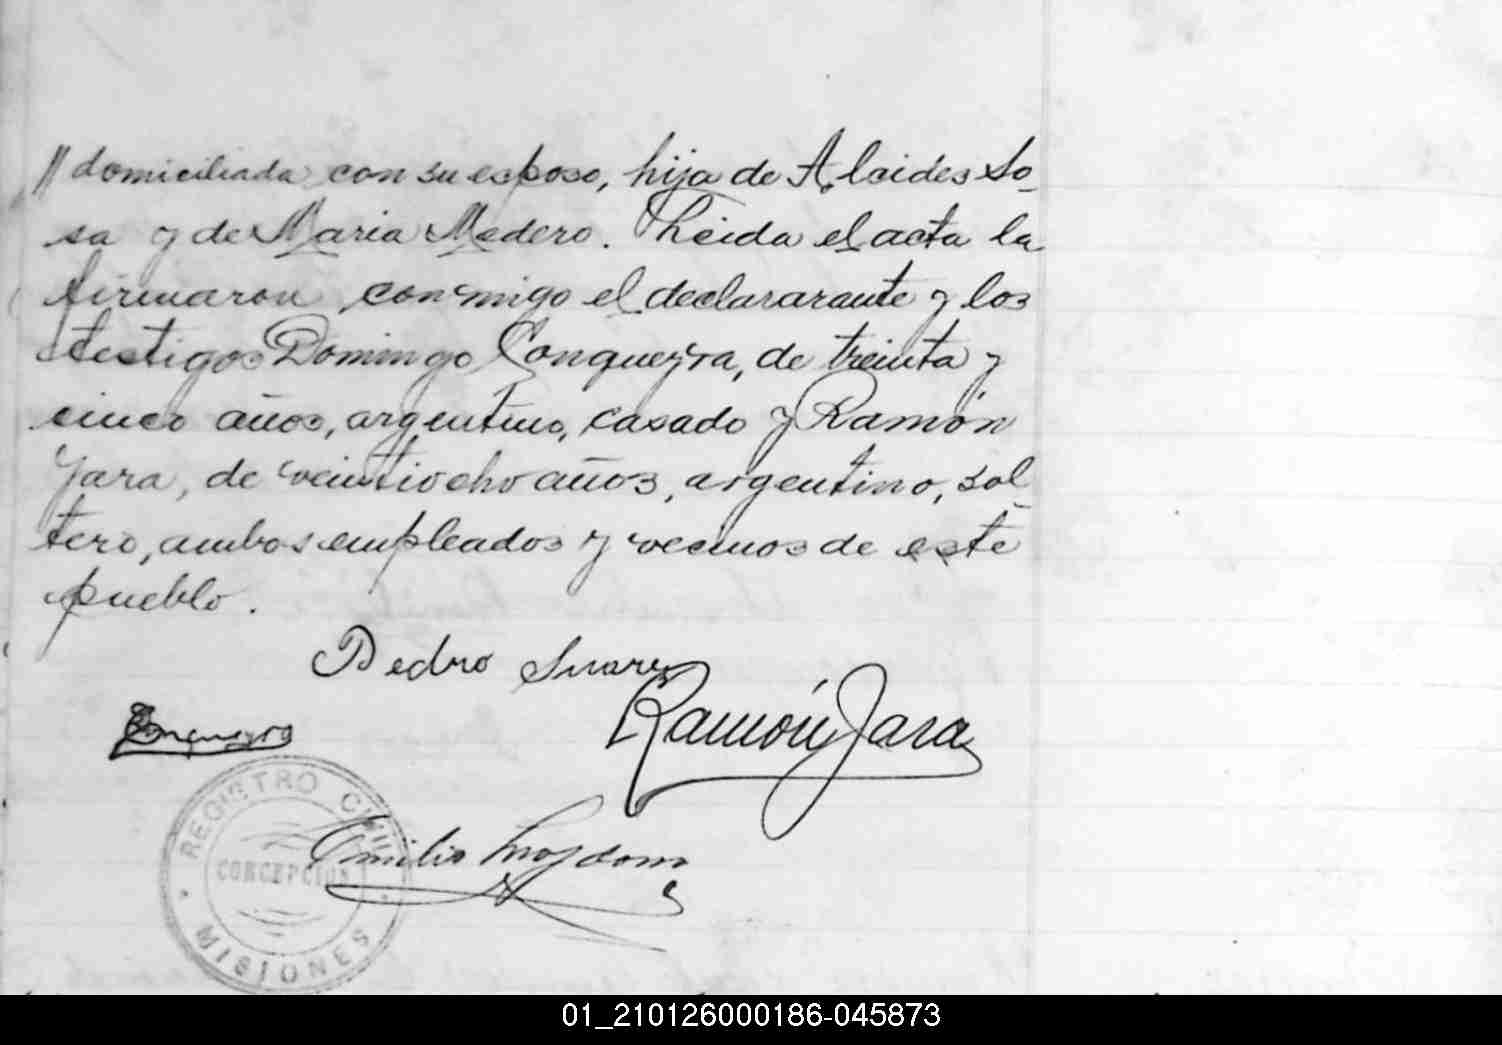 // domiciliada con su esposo, hija de Alcides So_
sa y de Maria Medero. Leida el acta la
firmaron conmigo el declararante y los
testigos Domingo Conqueyra, de treinta y
cinco años, argentino, casado y Ramón
Jara, de veintiocho años, argentino, sol_
tero, ambos empleados y vecinos de este
pueblo.
Pedro Suarez
Conqueyra
Ramón Jara
REGISTRO CIVIL
Emilio
CONCEPCION
MISIONES
01_210126000186-045873